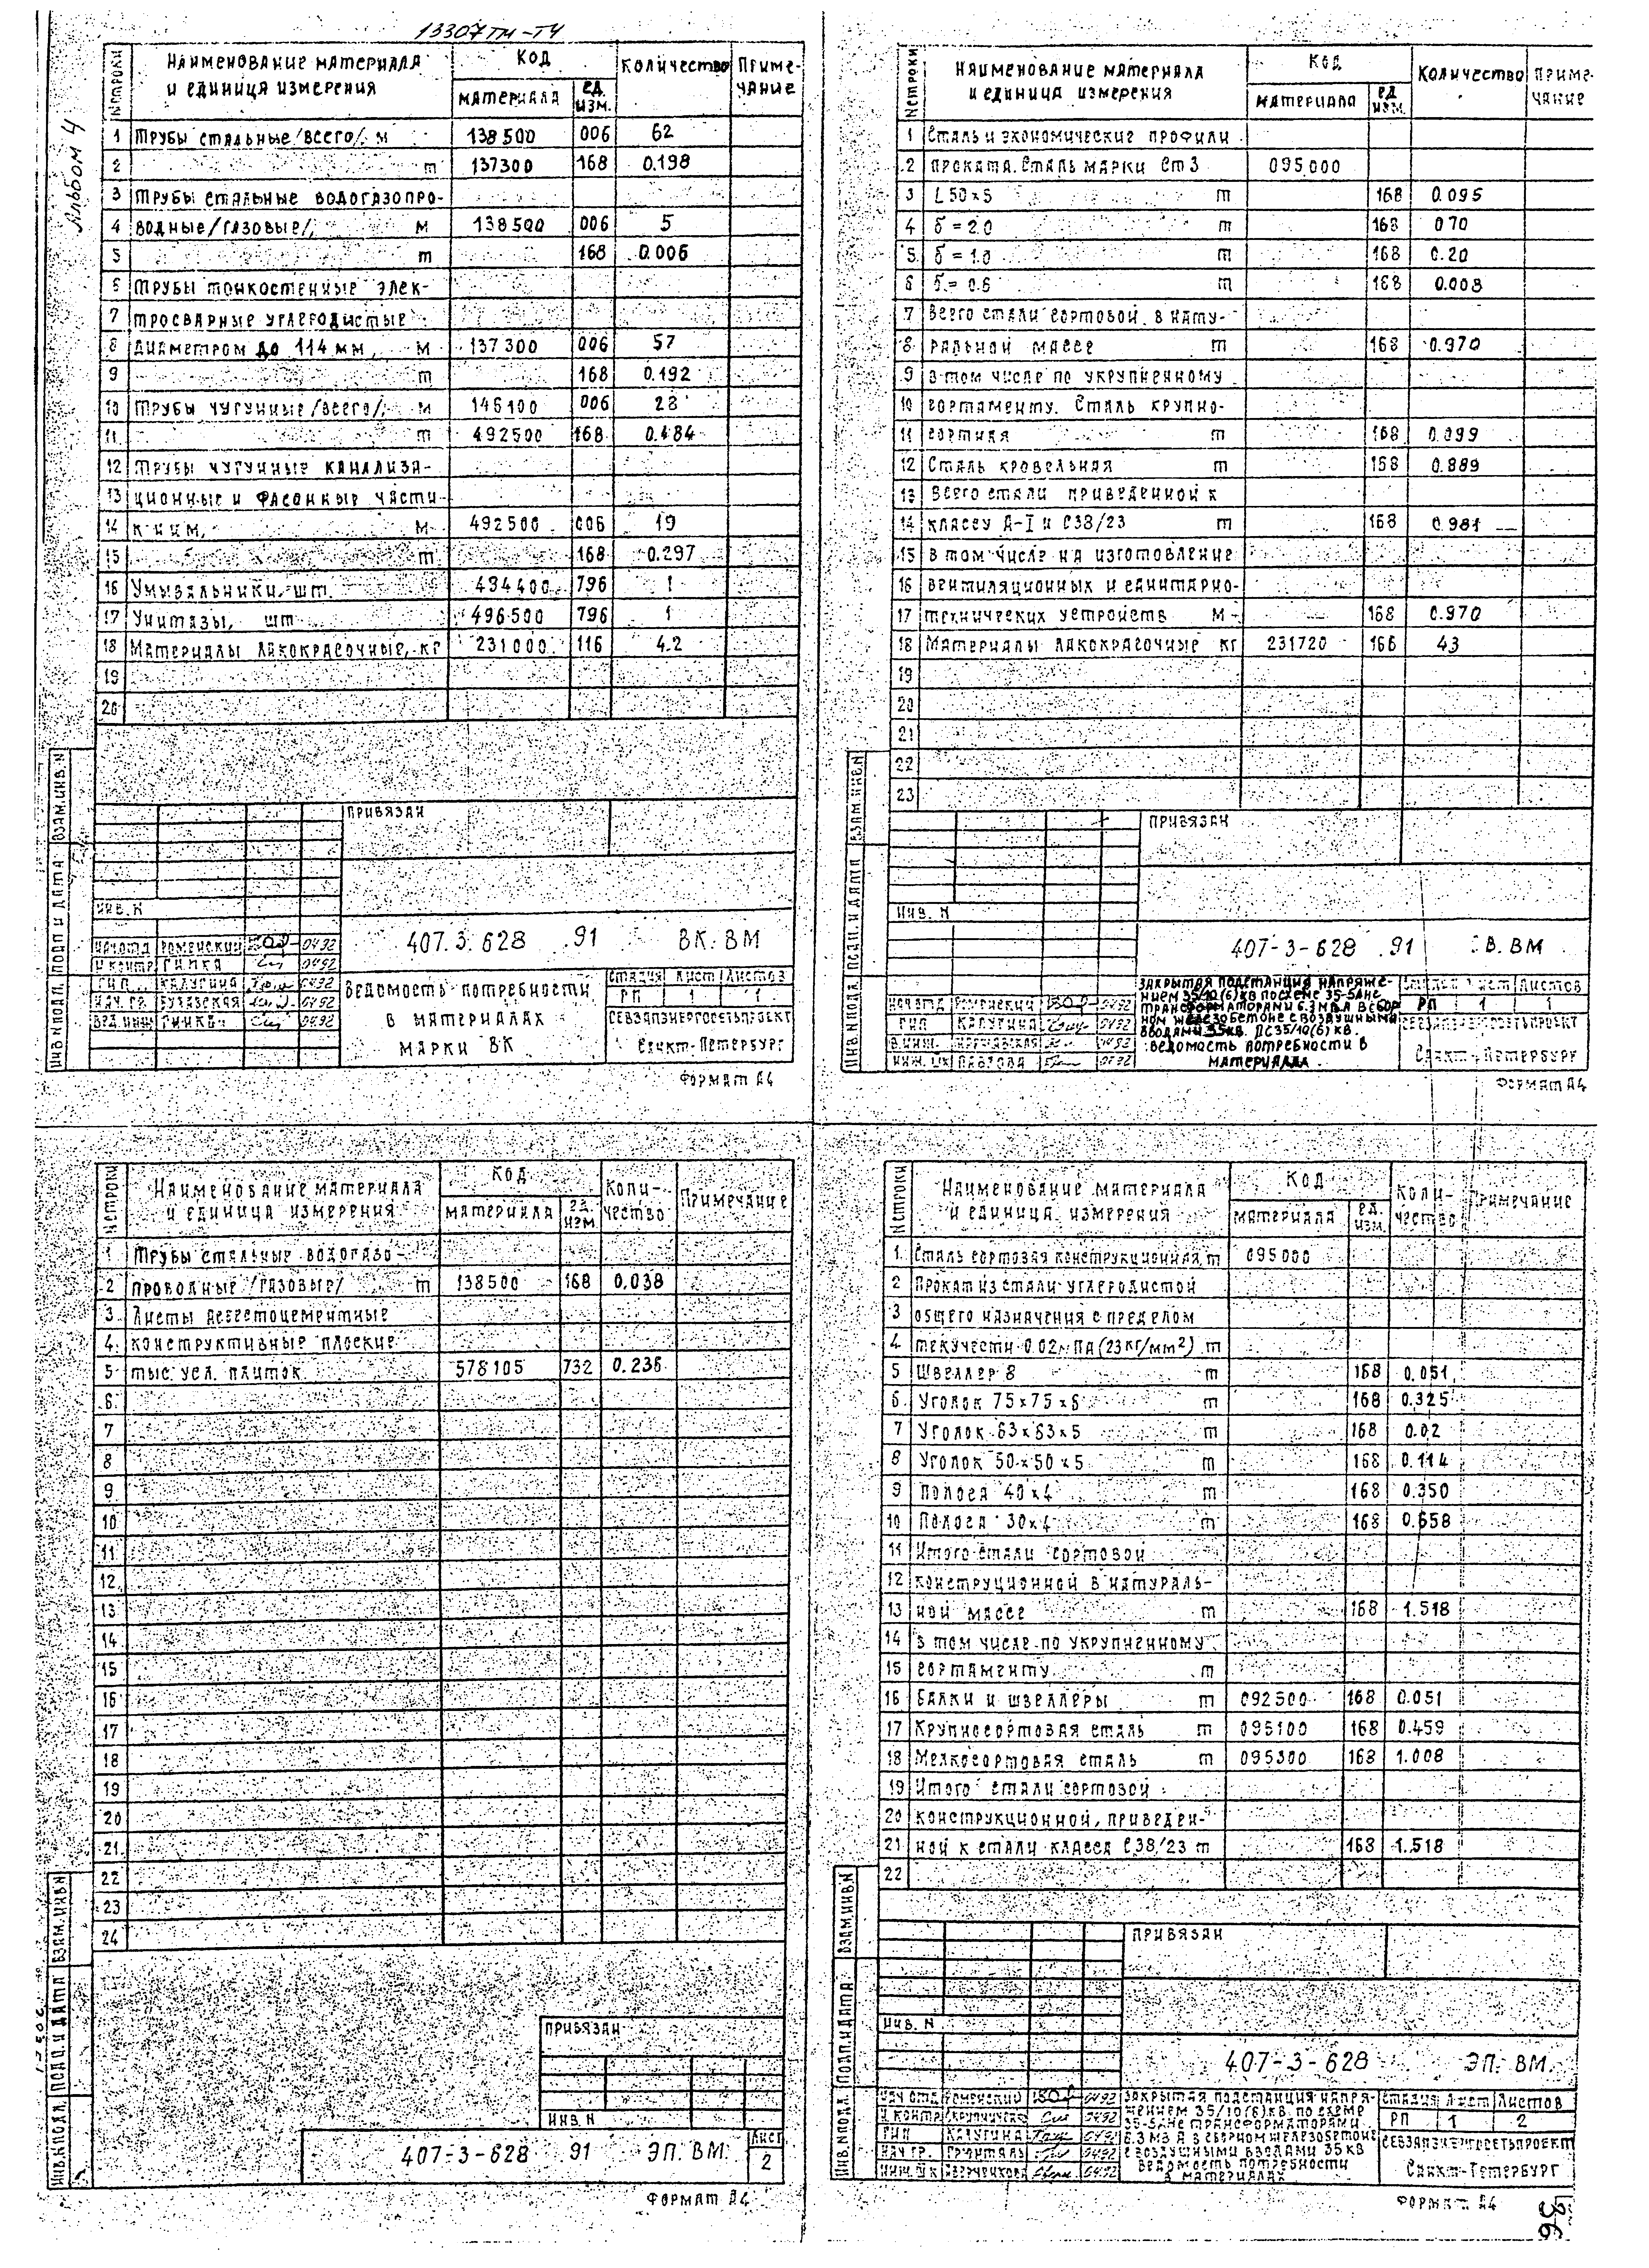 13307тм-т4
Альбом 4
№ строки | Наименование материала и единица измерения | Код | Количество | Примечание
материала | ед. изм.
1 Трубы стальные /всего/, м 138500 006 62
2 т 137300 168 0.198
3 Трубы стальные водогазопро-
4 водные /газовые/, м 138500 006 5
5 т 168 0.006
6 Трубы тонкостенные элек-
7 тросварные углеродистые
8 диаметром до 114 мм, м 137300 006 57
9 т 168 0.192
10 Трубы чугунные /всего/, м 146100 006 28
11 т 492500 168 0.484
12 Трубы чугунные канализа-
13 ционные и фасонные части
14 к ним, м 492500 006 19
15 т 168 0.297
16 Умывальники, шт. 494400 796 1
17 Унитазы, шт 496500 796 1
18 Материалы лакокрасочные, кг 231000 116 4.2
19
20
Привязан
Инв. N
407.3.628 .91 ВК. ВМ
Нач.отд Роменский 0492
Н.контр Гинка 0492
ГИП Калугина 0492
Нач. гр. 0492
Вед.инж 0492
Ведомость потребности
в материалах
марки ВК
Стадия Лист Листов
РП 1 1
Севзапэнергосетьпроект
Санкт-Петербург
Формат А4
Инв.N подл. Подп и дата Взам.инв.N
№ строки | Наименование материала и единица измерения | Код | Количество | Примечание
материала | ед. изм.
1 Сталь и экономические профили
2 проката. Сталь марки Ст3 095000
3 L 50×5 т 168 0.095
4 б = 2.0 т 168 0 70
5 б = 1.0 т 168 0.20
6 б = 0.6 т 168 0.008
7 Всего стали сортовой в нату-
8 ральной массе т 168 0.970
9 в том числе по укрупненному
10 сортаменту. Сталь крупно-
11 сортная т 168 0.099
12 Сталь кровельная т 168 0.889
13 Всего стали приведенной к
14 классу А-I и С38/23 т 168 0.981
15 в том числе на изготовление
16 вентиляционных и санитарно-
17 технических устройств м 168 0.970
18 Материалы лакокрасочные кг 231720 166 43
19
20
21
22
23
Привязан
Инв. N
407-3-628 .91 .В. ВМ
Нач отд Роменский 0492
ГИП Калугина 0492
В.инж. 0492
Инж. IIк Павлова 0792
Закрытая подстанция напряже-
нием 35/10(6)кВ по схеме 35-5АНс
трансформаторами 6.3 МВ.А в сбор
ном железобетоне с воздушными
вводами 35кВ. ПС35/10(6) кВ.
Ведомость потребности в
материалах
Стадия Лист Листов
РП 1 1
Севзапэнергосетьпроект
Санкт-Петербург
Формат А4
Инв.N подл. Подп. и дата Взам.инв.N
№ строки | Наименование материала и единица измерения | Код | Количество | Примечание
материала | ед. изм.
1 Трубы стальные водогазо-
2 проводные /газовые/ т 138500 168 0.038
3 Листы асбестоцементные
4 конструктивные плоские
5 тыс. усл. плиток 578105 732 0.236
6
7
8
9
10
11
12
13
14
15
16
17
18
19
20
21
22
23
24
Привязан
Инв. N
407-3-628 91 ЭП. ВМ.
Лист
2
Формат А4
Инв.N подл. Подп. и дата Взам.инв.N
№ строки | Наименование материала и единица измерения | Код | Количество | Примечание
материала | ед. изм.
1 Сталь сортовая конструкционная, т 095000
2 Прокат из стали углеродистой
3 общего назначения с пределом
4 текучести 0.02мПа (23кг/мм²) т
5 Швеллер 8 т 168 0.051
6 Уголок 75×75×6 т 168 0.325
7 Уголок 63×63×5 т 168 0.02
8 Уголок 50×50×5 т 168 0.114
9 Полоса 40×4 т 168 0.350
10 Полоса 30×4 т 168 0.658
11 Итого стали сортовой
12 конструционной в натураль-
13 ной массе т 168 1.518
14 в том числе по укрупненному
15 сортаменту т
16 Балки и швеллеры т 092500 168 0.051
17 Крупносортовая сталь т 095100 168 0.459
18 Мелкосортовая сталь т 095300 168 1.008
19 Итого стали сортовой
20 конструкционной, приведен-
21 ной к стали класса С38/23 т 168 1.518
22
Привязан
Инв. N
407-3-628 ЭП. ВМ.
Нач отд Роменский 0492
Н. контр 0492
ГИП Калугина 0492
Нач. гр. Грункаль 0492
Инж. IIк 0492
Закрытая подстанция напря-
жением 35/10(6)кВ. по схеме
35-5АНс трансформаторами
6.3 МВ А в сборном железобетоне
с воздушными вводами 35 кВ
Ведомость потребности
в материалах
Стадия Лист Листов
РП 1 2
Севзапэнергосетьпроект
Санкт-Петербург
Формат А4
Инв.N подл. Подп.и дата Взам.инв.N
36